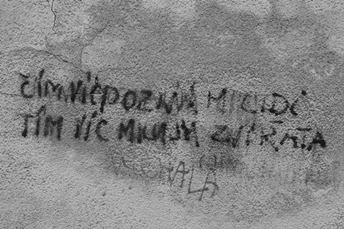 ČÍM VÍC POZNÁM LIDI
TÍM VÍC MILUJI ZVÍŘATA